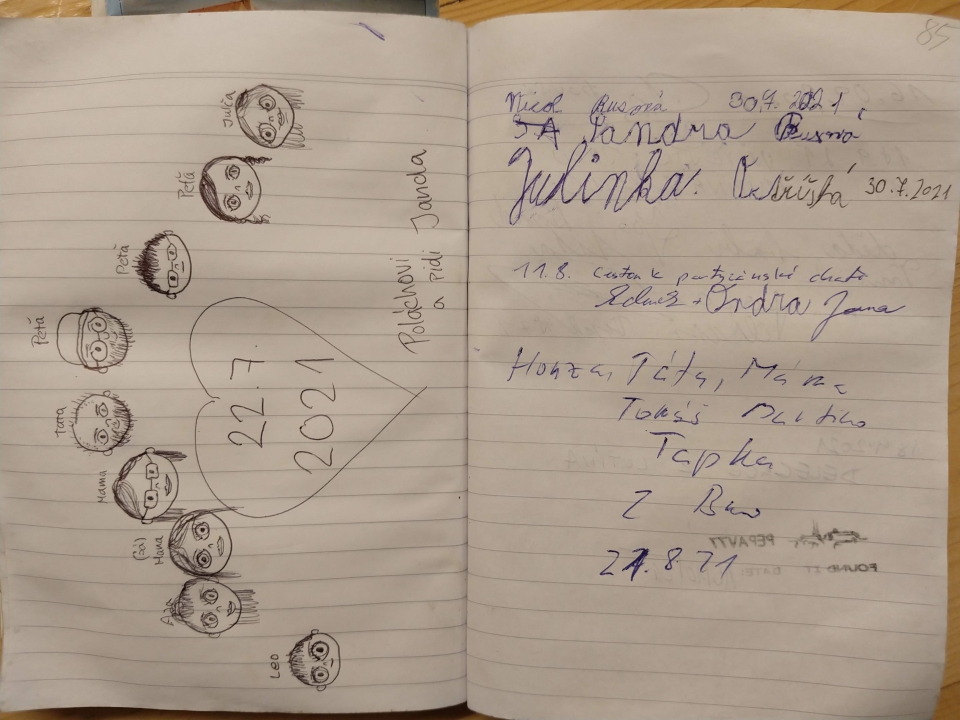 Julča
Péťa
Péťa
Péťa
Táta
Mama
(já)
Hana
Leo
22.7
2021
Poláchovi
a přidi Janda
85
Nicol Rusová 30.7.2021,
SA Sandra Rusová
Julinka. 30.7.2021
11.8. cestou k partyzánské chatě
+ Ondra Jana
Honza, Táta, Máma
Tomáš Martina
Tapka
Z Brna
21.8.21
PEPANTT
FOUND IT DATE: